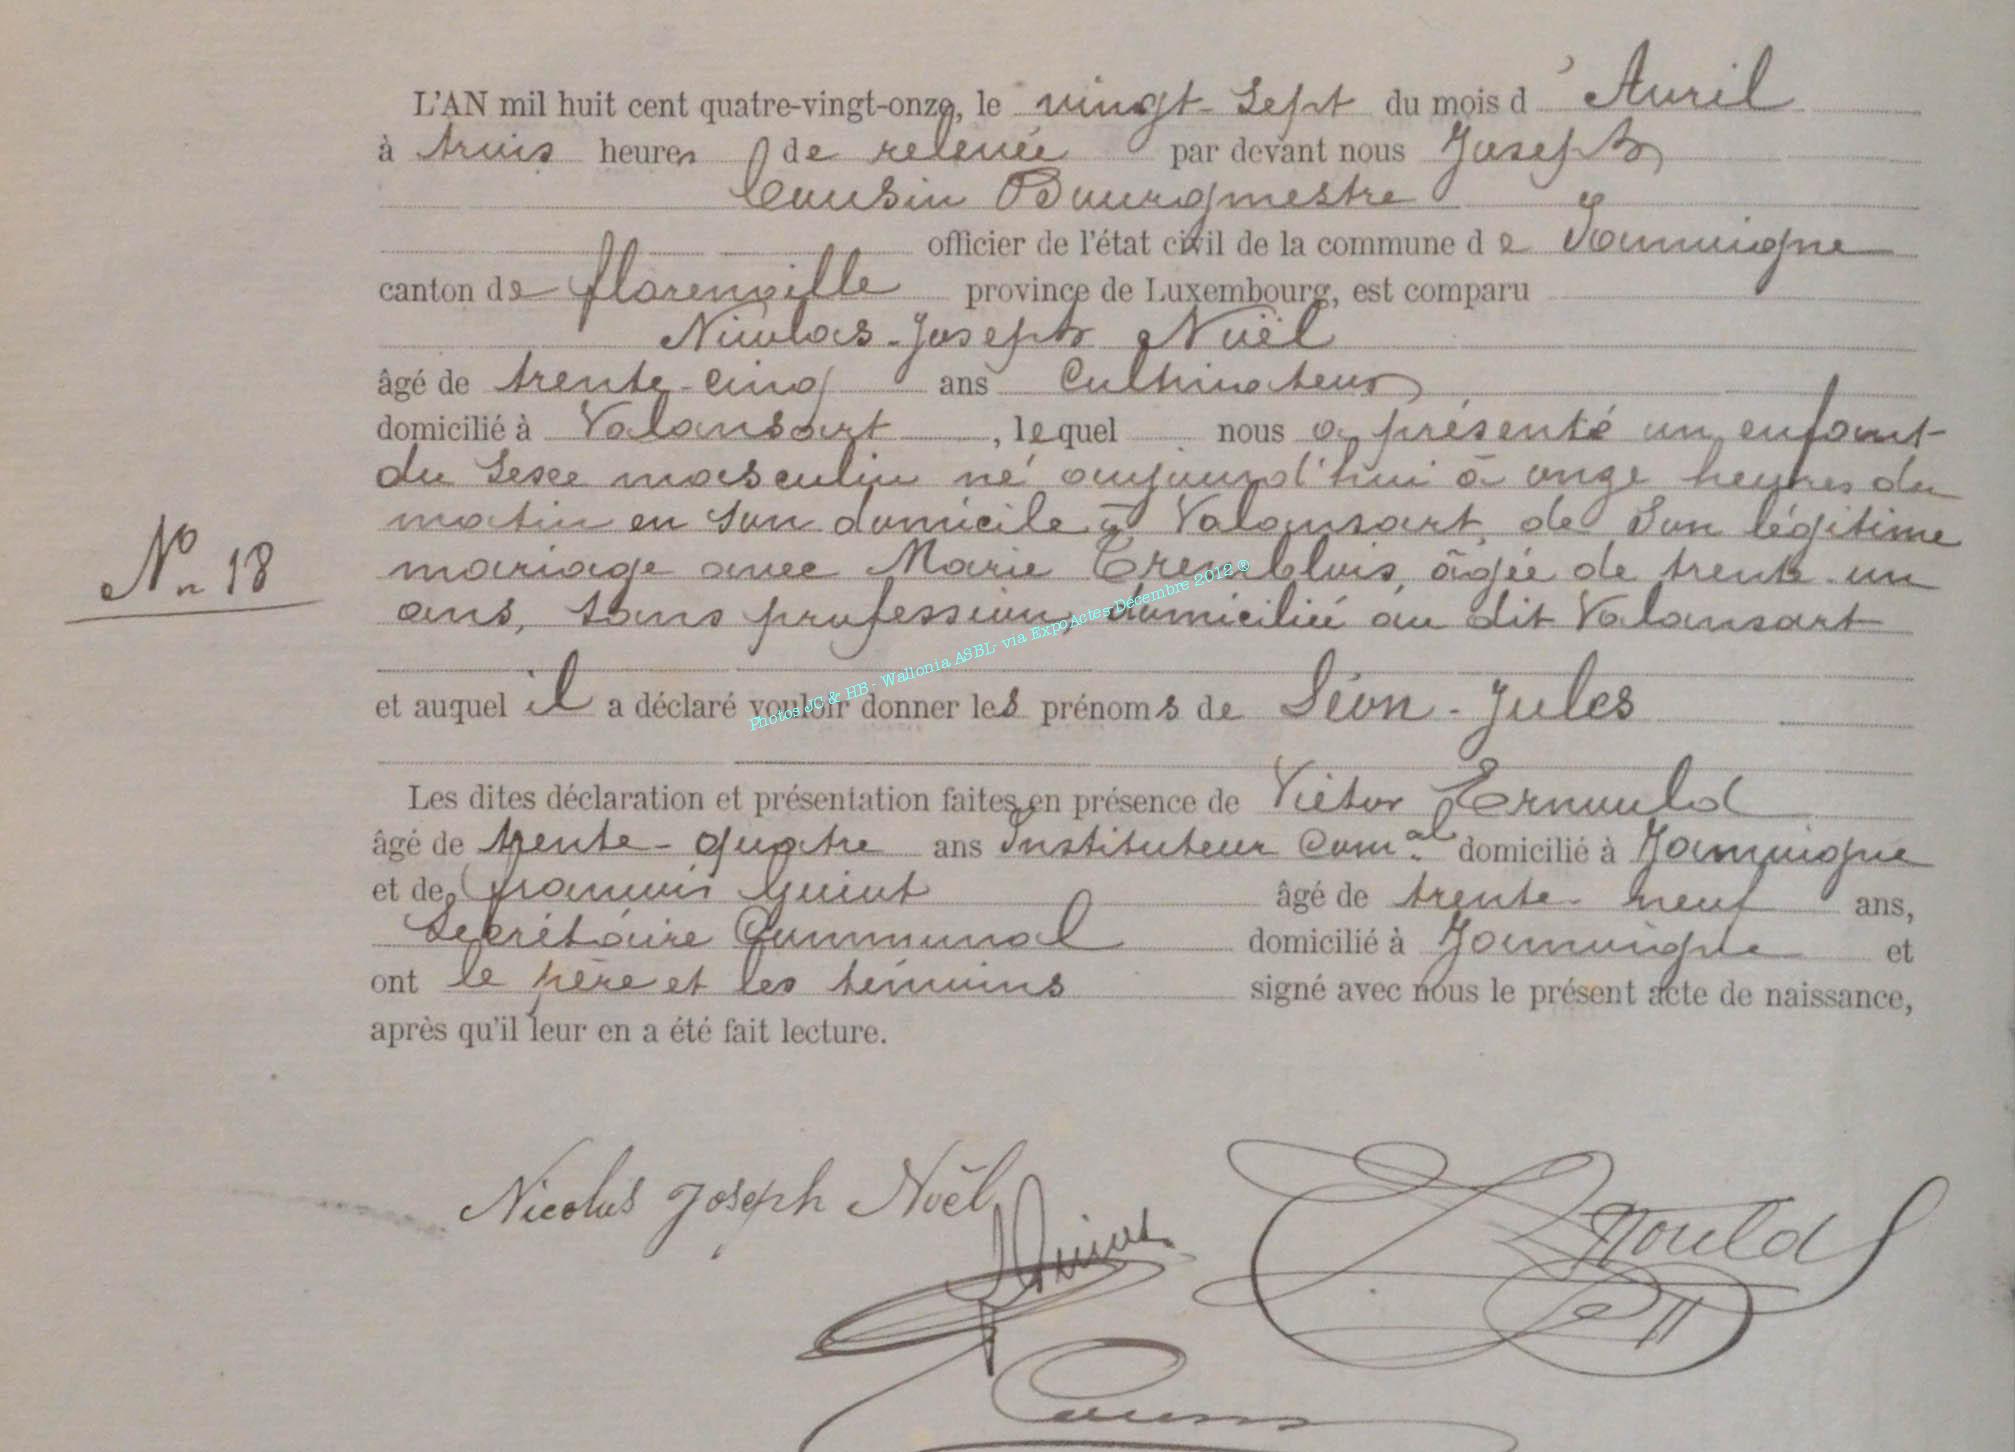 L'AN mil huit cent quatre-vingt-onze, le vingt-sept du mois d'Avril
à trois heures de relevée par devant nous Joseph
Cousin Bourgmestre
officier de l'état civil de la commune de Jamoigne
canton de florenville province de Luxembourg, est comparu
Nicolas-Joseph Noël
âgé de trente-cinq ans Cultivateur
domicilié à Valansart, lequel nous a présenté un enfant
du sexe masculin né aujourd'hui à onze heures du
matin en son domicile à Valansart, de son légitime
mariage avec Marie Tremblois, âgée de trente-un
Nº 18
ans, sans profession, domiciliée au dit Valansart
et auquel il a déclaré vouloir donner les prénoms de Léon-Jules
Les dites déclaration et présentation faites en présence de Victor Ernould
âgé de trente-quatre ans Instituteur Com.al domicilié à Jamoigne
et de françois Guiot âgé de trente-neuf ans,
Secrétaire Communal domicilié à Jamoigne et
ont le père et les témoins signé avec nous le présent acte de naissance,
après qu'il leur en a été fait lecture.
Photos JC & HB - Wallonia ASBL- via ExpoActes-Décembre 2012 ®
Nicolas Joseph Noël
Guiot
Ernould